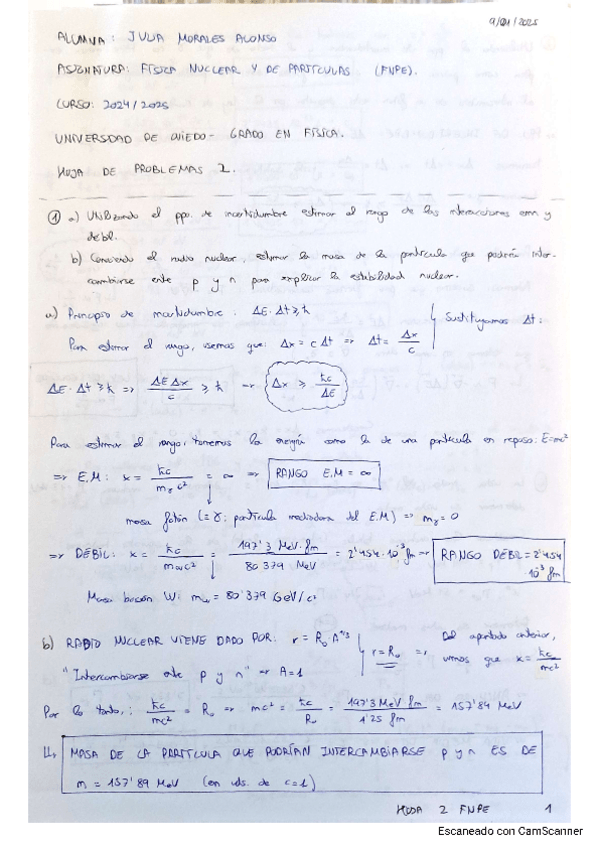 9/01/2025
ALUMNA: JULIA MORALES ALONSO
ASIGNATURA: FÍSICA NUCLEAR Y DE PARTÍCULAS (FNPE).
CURSO: 2024/2025
UNIVERSIDAD DE OVIEDO - GRADO EN FÍSICA.
HOJA DE PROBLEMAS 2.
① a) Utilizando el ppo. de incertidumbre estimar el rango de las interacciones emn y
débil.
b) Conociendo el radio nuclear, estimar la masa de la partícula que podría inter-
cambiarse ente p y n para explicar la estabilidad nuclear.
a) Principio de incertidumbre: ΔE·Δt ≥ ħ
Sustituyamos Δt:
Para estimar el rango, usemos que: Δx = cΔt ⇒ Δt = Δx/c
ΔE·Δt ≥ ħ ⇒ ΔEΔx/c ≥ ħ ⇒ Δx ≥ ħc/ΔE
Para estimar el rango, tomemos la energía como la de una partícula en reposo: E=mc²
⇒ E.M: x = ħc/m_γc² = ∞ ⇒ RANGO E.M = ∞
masa fotón (≡γ: partícula mediadora del E.M) ⇒ m_γ = 0
⇒ DÉBIL: x = ħc/m_wc² = 197'3 MeV·fm/80 379 MeV = 2'454·10⁻³ fm ⇒ RANGO DÉBIL = 2'454
·10⁻³ fm
Masa bosón W: m_w = 80'379 GeV/c²
b) RADIO NUCLEAR VIENE DADO POR: r = R₀·A^1/3
r = R₀ ⇒
Del apartado anterior,
vimos que x = ħc/mc²
"Intercambiarse ente p y n" ⇒ A=1
Por lo tanto,: ħc/mc² = R₀ ⇒ mc² = ħc/R₀ = 197'3 MeV·fm/1'25 fm = 157'84 MeV
MASA DE LA PARTÍCULA QUE PODRÍAN INTERCAMBIARSE p y n ES DE
m = 157'89 MeV (en uds. de c=1)
HOJA 2 FNPE 1
Escaneado con CamScanner